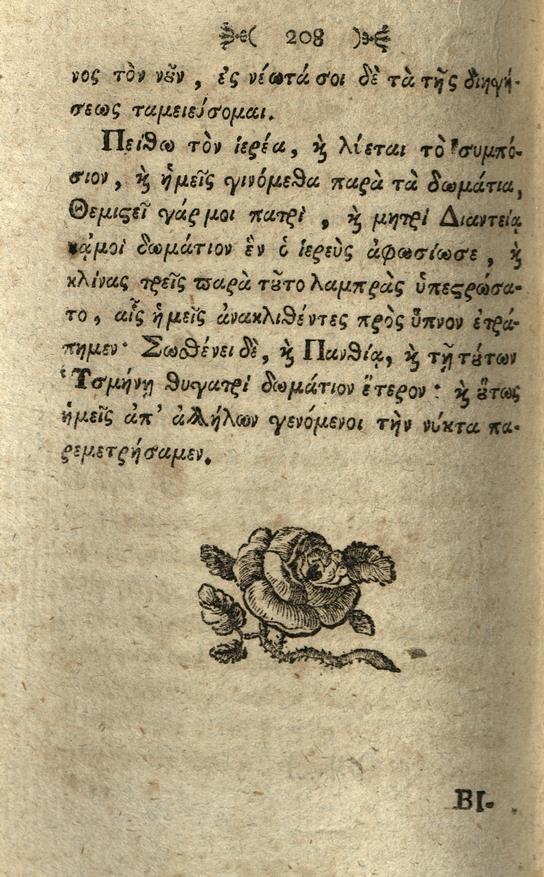 208
νος τὸν νοῦν, ἐς νέωτά σοι δὲ τὰ τῆς διηγή-
σεως ταμειεύσομαι.
Πείθω τὸν ἱερέα, ϗ λύεται τὸ συμπό-
σιον, ϗ ἡμεῖς γινόμεθα παρὰ τὰ δωμάτια,
Θεμιϛεῖ γάρ μοι πατρὶ, ϗ μητρὶ Διαντείᾳ
κᾀμοὶ δωμάτιον ἓν ὁ ἱερεὺς ἀφωσίωσε, ϗ
κλίνας τρεῖς παρὰ τοῦτο λαμπρὰς ὑπεϛρώσα-
το, αἷς ἡμεῖς ἀνακλιθέντες πρὸς ὕπνον ἐτρά-
πημεν· Σωσθένει δὲ, ϗ Πανθίᾳ, ϗ τῇ τούτων
Ὑσμήνῃ θυγατρὶ δωμάτιον ἕτερον· ϗ οὕτως
ἡμεῖς ἀπ' ἀλλήλων γενόμενοι τὴν νύκτα πα-
ρεμετρήσαμεν.
ΒΙ-